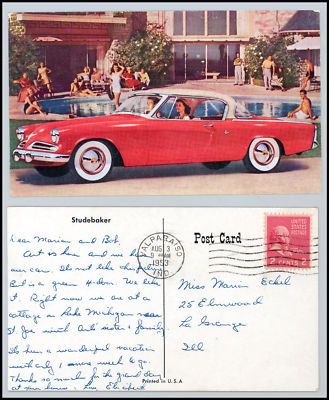 Studebaker
Dear Marian and Bob,
Got so here and we have
our car. Its not like
But is a green H-dson. We like
it. Right now we are at a
cottage on Lake Michigan near
St. Joe with sister & family.
Its been a wonderful vacation
with only 1 more week to go.
Thanks so much for the grand day
at your house. Love Elizabeth
Printed in U. S. A.
VALPARAISO
AUG 3
9 AM
1953
IND.
Post Card
UNITED STATES
POSTAGE
2 CENTS 2
Miss Marian Eckel
25 Elmwood
La Grange
Ill